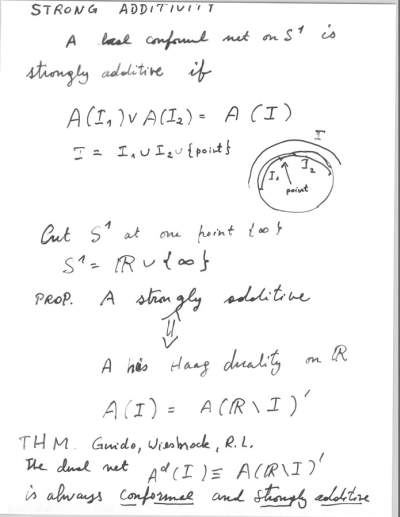 STRONG ADDITIVITY
A local conformal net on S¹ is
strongly additive if
A(I₁) ∨ A(I₂) = A(I)
I = I₁ ∪ I₂ ∪ {point}
I
I₁
I₂
point
Cut S¹ at one point {∞}
S¹ = ℝ ∪ {∞}
PROP. A strongly additive
⇕
A has Haag duality on ℝ
A(I) = A(ℝ \ I)'
THM. Guido, Wiesbrock, R.L.
The dual net Aᵈ(I) ≡ A(ℝ\I)'
is always conformal and strongly additive